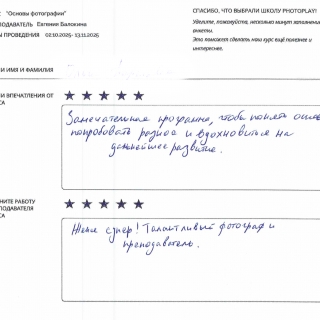 "Основы фотографии"
Евгения Балокина
02.10.2025- 13.11.2025
СПАСИБО, ЧТО ВЫБРАЛИ ШКОЛУ PHOTOPLAY!
Уделите, пожалуйста, несколько минут заполнению
анкеты.
Это поможет сделать наш курс ещё полезнее и
интереснее.
И ИМЯ И ФАМИЛИЯ
И ВПЕЧАТЛЕНИЯ ОТ
Замечательная программа, чтобы понять
попробовать разное и вдохновиться на
дальнейшее развитие.
НИТЕ РАБОТУ
Женя супер! Талантливый фотограф и
преподаватель.